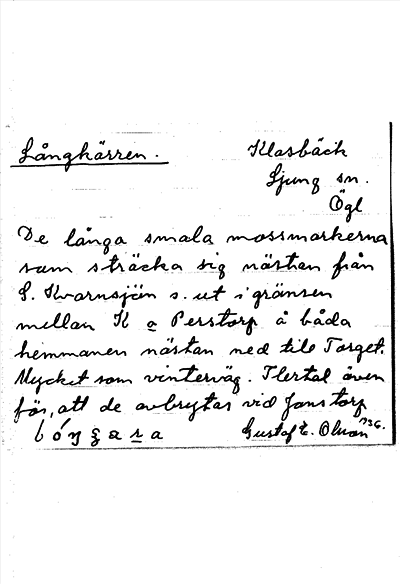 Långkärren.
Klasbäck
Ljung sn.
Ögl
De långa smala mossmarkerna
som sträcka sig nästan från
S. Kvarnsjön s. ut i gränsen
mellan K o Perstorp å båda
hemmanen nästan ned till Torget.
Nyckel som vinterväg. Flertal även
för, att de avbrytas vid Jonstorp
Gustaf E. Olsson 1936.